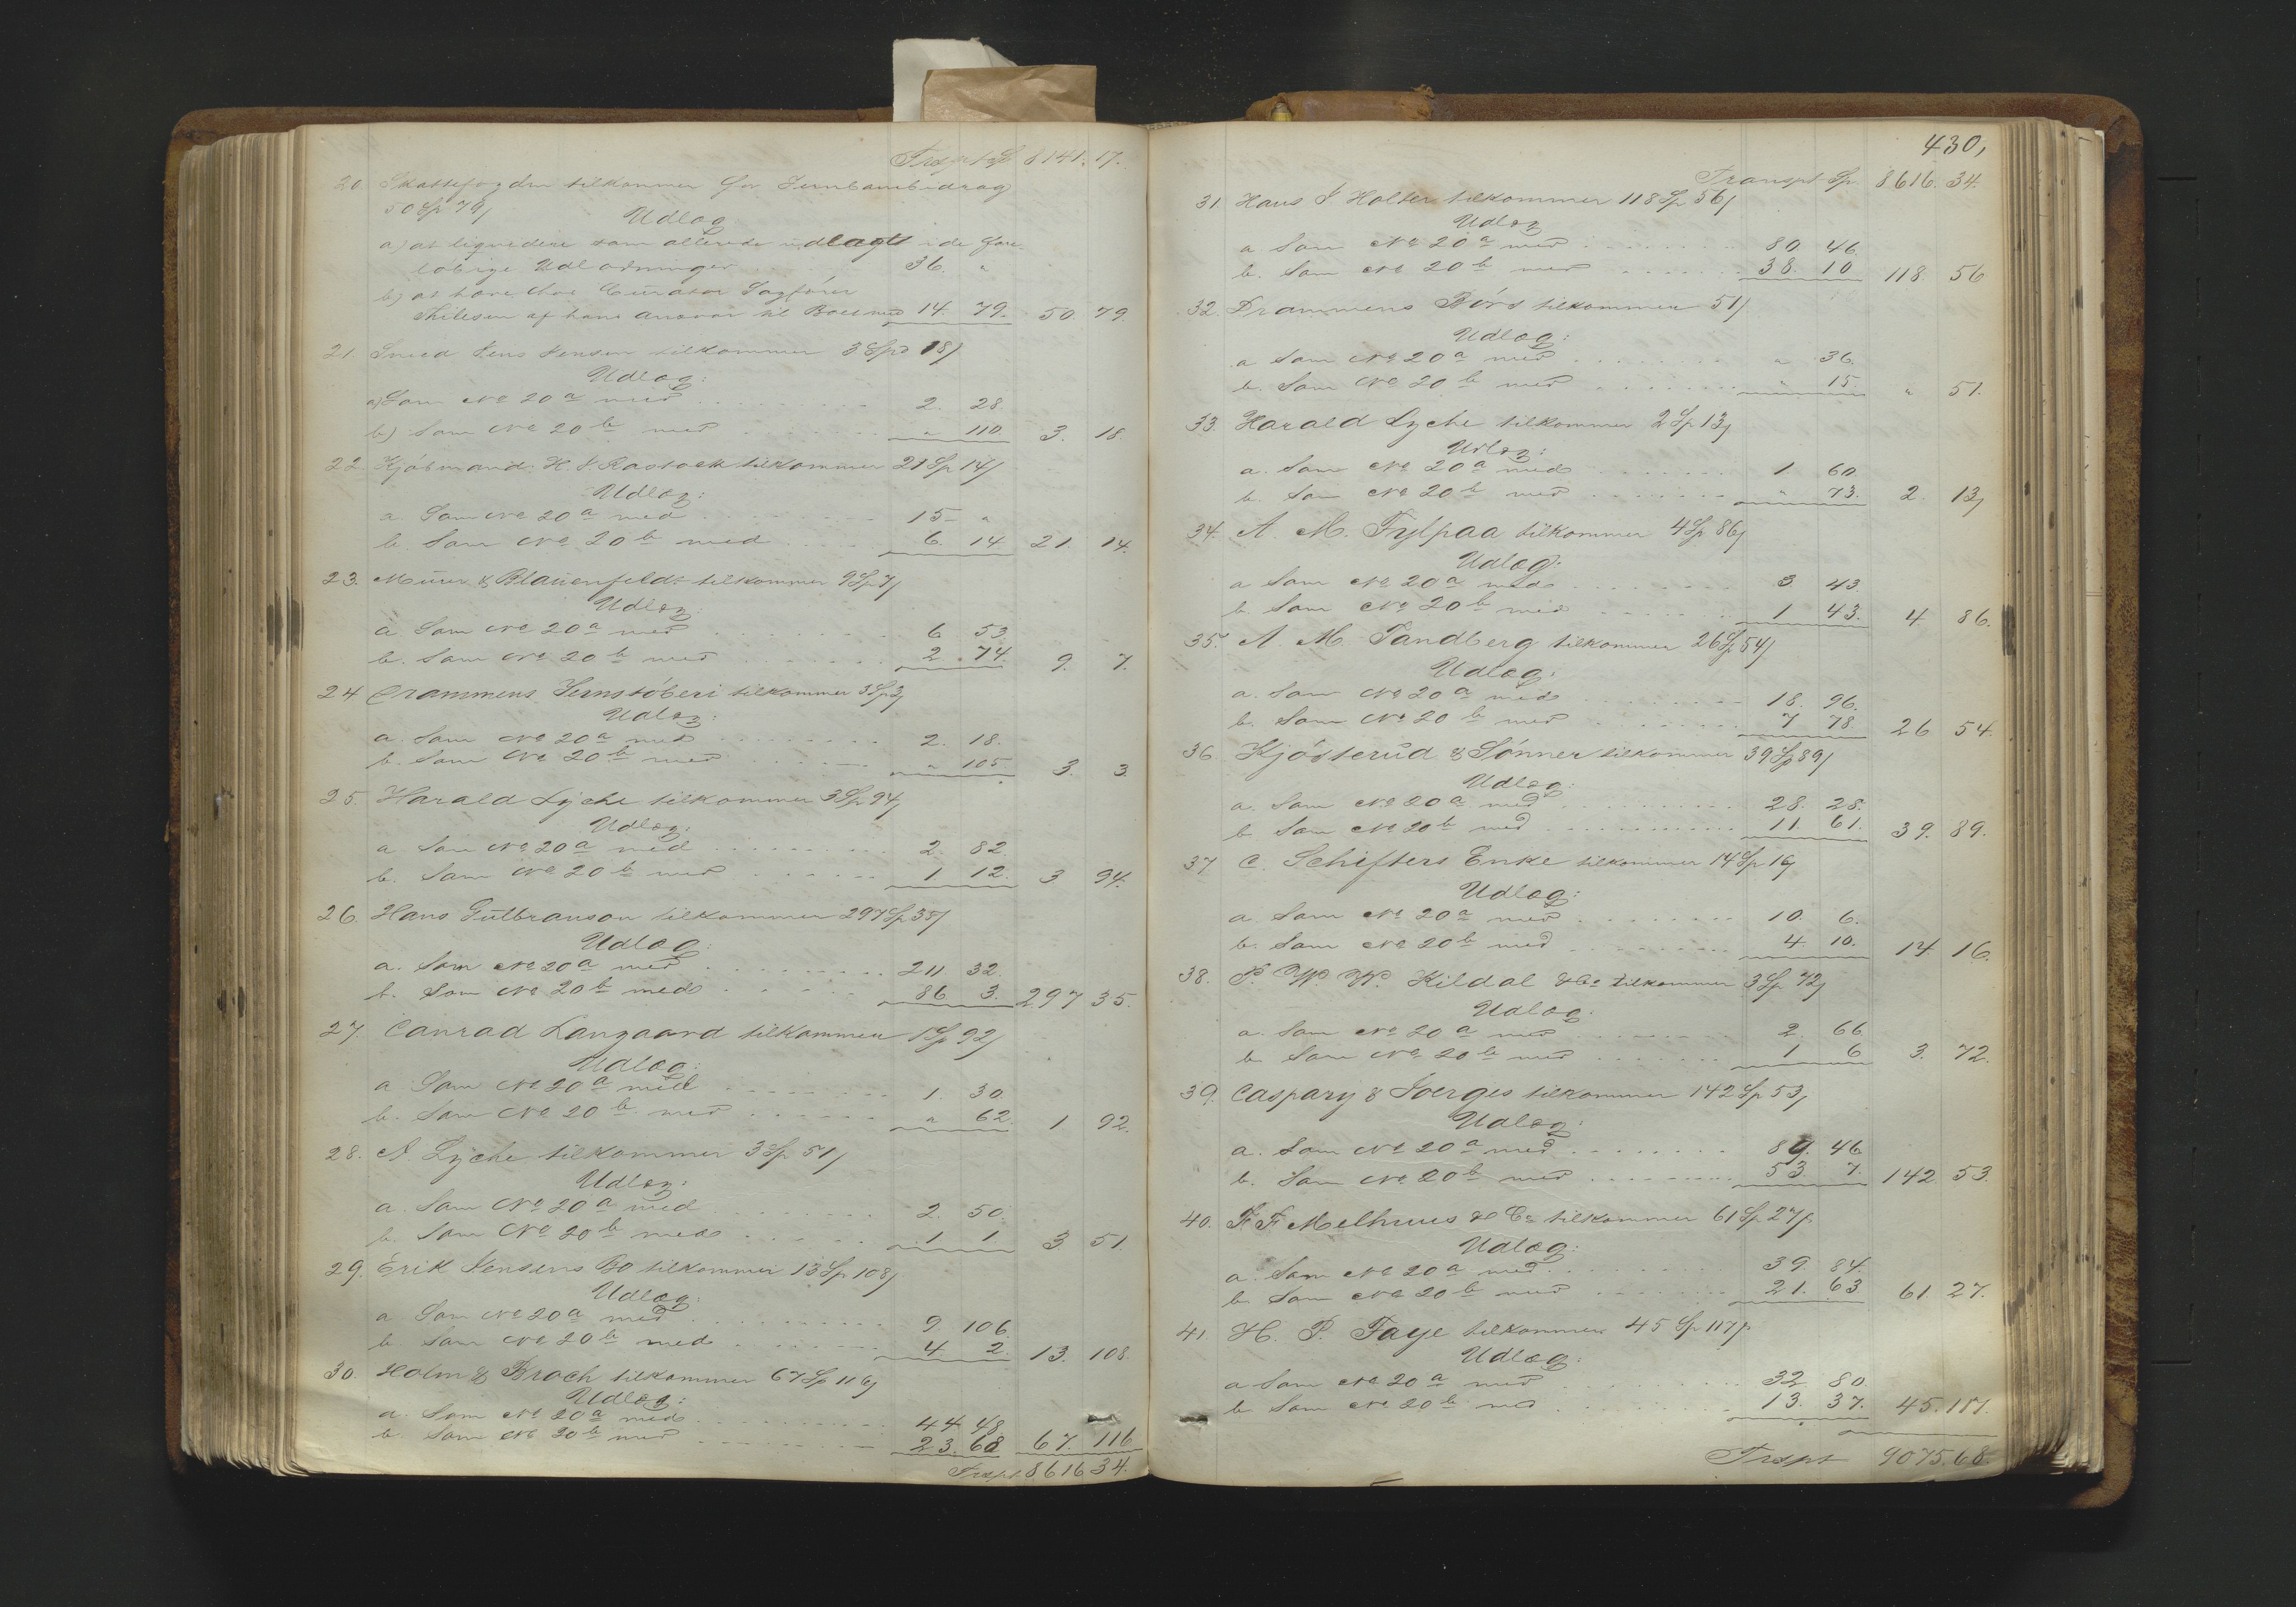 Trspt Sp 8141. 17.
20. Skattefogden tilkommer for Jernbanebidrag
50 Sp 79/
Udlæg
a) at liqvidere som allerede udlagt i de fore-
løbige Udlodninger 36. "
b) at hæve hos Curator Sagfører
af hans Ansvar til Boet med 14. 79. 50. 79.
21. Sneed. Jens Jensen tilkommer 3 Spd 18/
Udlæg:
a) Som No 20 a med 2. 28
b) Som No 20 b med " 110 3. 18.
22. Kjøbmand H. J. Rastock tilkommer 21 Sp 14/
Udlæg:
a. Som No 20 a med 15 "
b. Som No 20 b med 6. 14. 21. 14.
23. Meuer & Blauenfeldt tilkommer 9 Sp 7/
Udlæg:
a. Som No 20 a med 6 53.
b. Som No 20 b med 2. 74. 9. 7.
24 Drammens Jernstøberi tilkommer 3 Sp 3/
Udlæg:
a. Som No 20 a med 2. 18.
b. Som No 20 b med " 105 3. 3.
25. Harald Lyche tilkommer 3 Sp 94/
Udlæg:
a Som No 20 a med 2. 82.
b. Som No 20 b med 1 12. 3 94.
26. Hans Gulbranson tilkommer 297 Sp 35/
Udlæg:
a. Som No 20 a med 211 32.
b. Som No 20 b med 86 3. 297 35.
27. Conrad Langaard tilkommer 1 Sp 92/
Udlæg:
a Som No 20 a med 1. 30.
b. Som No 20 b med " 62. 1 92.
28. A. Lyche tilkommer 3 Sp 51/
Udlæg:
a. Som No 20 a med 2. 50.
b. Som No 20 b med 1 1 3. 51.
29. Erik Jensens Bo tilkommer 13 Sp 108/
Udlæg:
a Som No 20 a med 9. 106.
b. Som No 20 b med 4. 2. 13. 108.
30. Holm & Broch tilkommer 67 Sp 116/
Udlæg:
a. Som No 20 a med 44 48
b. Som No 20 b med 23. 68 67. 116
Trspt 8616 34.
430,
Transpt Sp 8616. 34.
31. Hans J Holter tilkommer 118 Sp 56/
Udlæg
a Som No 20 a med 80. 46
b. Som No 20 b med 38. 10 118. 56
32. Drammens Børs tilkommer 51/
Udlæg:
a Som No 20 a med " 36.
b. Som No 20 b med " 15. " 51.
33. Harald Lyche tilkommer 2 Sp 13/
Udlæg:
a. Som No 20 a med 1. 60.
b. Som No 20 b med " 73. 2. 13/
34. A. M. Fylpaa tilkommer 4 Sp 86/
Udlæg:
a Som No 20 a med 3 43.
b. Som No 20 b med 1 43. 4. 86.
35. A M. Sandberg tilkommer 26 Sp 54/
Udlæg:
a. Som No 20 a med 18. 96.
b. Som No 20 b med 7 78. 26 54.
36. Kjøsterud & Sønner tilkommer 39 Sp 89/
Udlæg:
a. Som No 20 a med 28. 28.
b Som No 20 b med 11. 61. 39. 89.
37. C. Schifters Enke tilkommer 14 Sp 16/
Udlæg:
a. Som No 20 a med 10. 6.
b. Som No 20 b med 4. 10. 14. 16.
38. P. W. W. Kildal & Co tilkommer 3 Sp 72/
Udlæg.
a. Som No 20 a med 2. 66
b. Som No 20 b med 1 6 3. 72.
39. Caspary & Joerges tilkommer 142 Sp 53/
Udlæg:
a. Som No 20 a med 89. 46
b. Som No 20 b med 53 7. 142 53.
40. Fr F Melhuus & Co tilkommer 61 Sp 27/
Udlæg:
a. Som No 20 a med 39. 84.
b Som No 20 b med 21. 63 61 27.
41. H. P. Faye tilkommer 45 Sp 117/
Udlæg:
a Som No 20 a med 32 80.
b Som No 20 b med 13. 37. 45. 117.
Trspt 9075. 68.